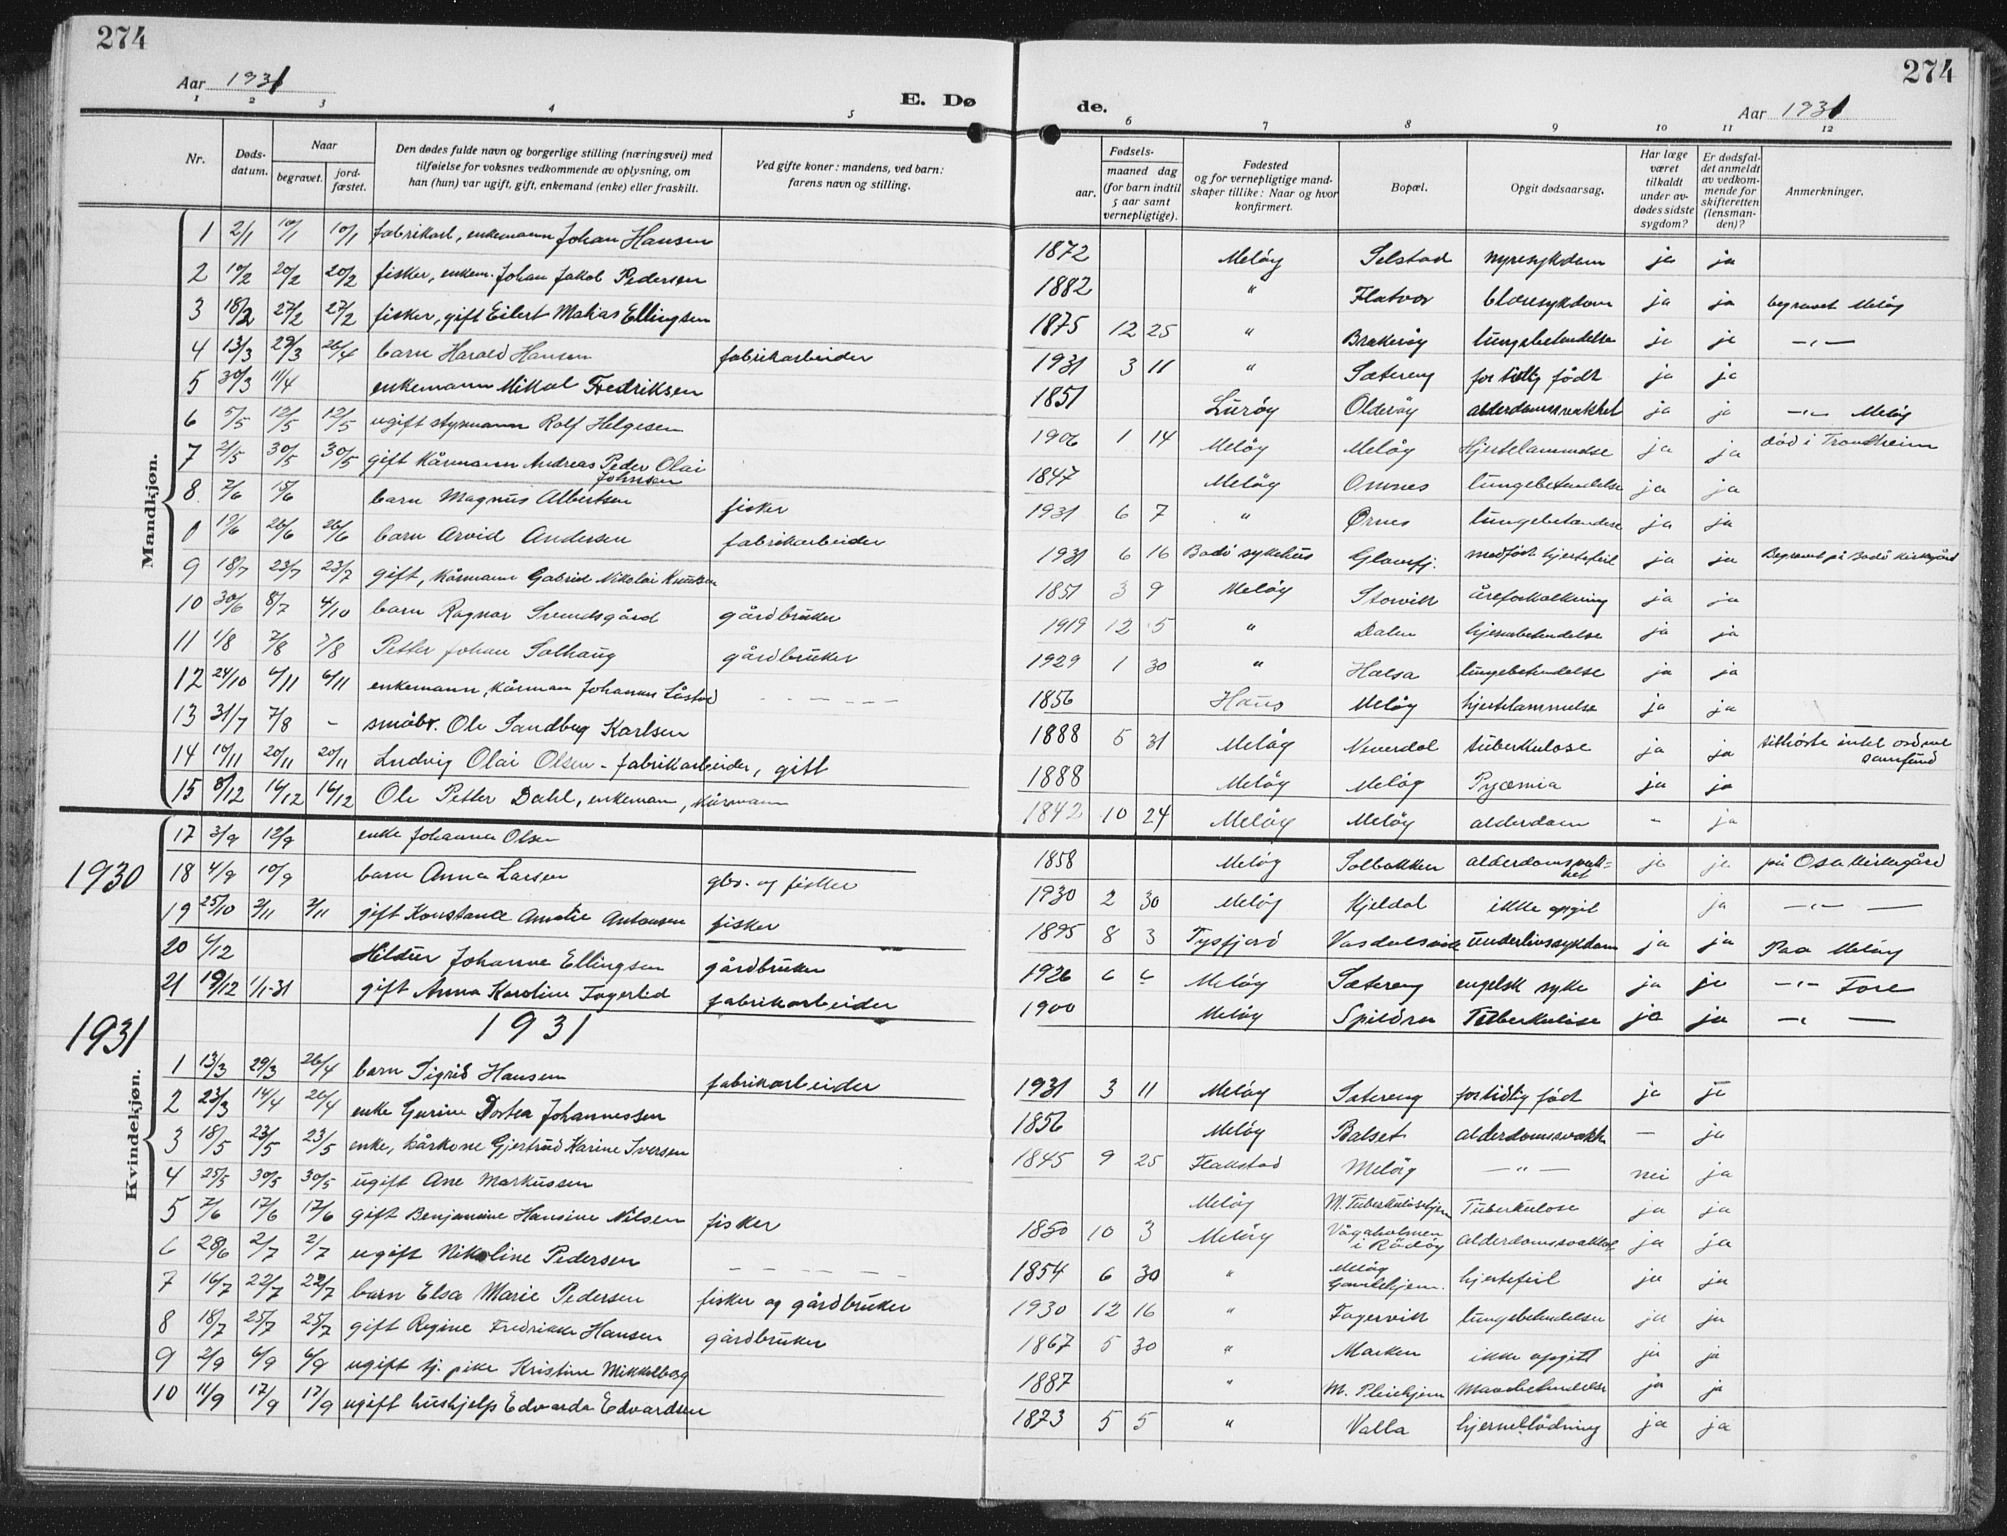 274
274
Aar 1931
E. Dø
de.
Aar 1931
1 2 3 4 5 6 7 8 9 10 11 12
Nr.
Døds-datum.
Naar
begravet.
jord-fæstet.
Den dødes fulde navn og borgerlige stilling (næringsvei) med
tilføielse for voksnes vedkommende av oplysning, om
han (hun) var ugift, gift, enkemand (enke) eller fraskilt.
Ved gifte koner: mandens, ved barn:
farens navn og stilling.
Fødsels-
aar.
maaned dag
(for barn indtil
5 aar samt
vernepligtige).
Fødested
og for vernepligtige mand-
skaper tillike: Naar og hvor
konfirmert.
Bopæl.
Opgit dødsaarsag.
Har læge
været
tilkaldt
under av-
dødes sidste
sygdom?
Er dødsfal-
det anmeldt
av vedkom-
mende for
skifteretten
(lensman-
den)?
Anmerkninger.
Mandkjøn.
1 2/1 10/1 10/1 fabrikarb, enkemann Johan Hansen 1872 Meløy Selstad nyresykdom ja ja
2 10/2 20/2 20/2 fisker, enkem. Johan Jakob Pedersen 1882 " Flatvær blæresykdom ja ja begravet Meløy
3 18/2 27/2 27/2 fisker, gift Eilert Matias Ellingsen 1875 12 25 " Brakerøy lungebetendelse ja ja -"-
4 13/3 29/3 26/4 barn Harald Hansen fabrikarbeider 1931 3 11 " Sætereng for tidlig født ja ja
5 30/3 11/4 enkemann Mikal Fredriksen 1851 Lurøy Olderøy alderdomssvakhet ja ja -"- Meløy
6 5/5 12/5 12/5 ugift styrmann Rolf Helgesen 1906 1 14 Meløy Meløy Hjertelammelse ja ja död i Trondheim
7 21/5 30/5 30/5 gift kårmann Andreas Peder Olai Johnsen 1847 Meløy Omnes lungebetendelse ja ja
8. 7/6 15/6 barn Magnus Albertsen fisker 1931 6 7 " Ørnes lungebetendelse ja ja
0 19/6 26/6 26/6 barn Arvid Andersen fabrikarbeider 1931 6 16 Bodö sykehus Glomfj. medfödt hjertefeil ja ja Begravet på Bodö kirkegård
9 18/7 23/7 23/7 gift, kårmann Gabriel Nikolai Knutsen 1851 3 9 Meløy Storvik åreforkalkning ja ja
10 30/6 8/7 4/10 barn Ragnar Svendsgård gårdbruker 1919 12 5 " Dalen hjernebetendelse ja ja
11 1/8 7/8 7/8 Petter Johan Solhaug gårdbruker 1929 1 30 " Halsa lungebetendelse ja ja
12 24/10 6/11 6/11 enkemann, kårman Johannes Låstad 1856 Meløy hjertelammelse ja ja
13 31/7 7/8 - småbr. Ole Sandberg Karlsen 1888 5 31 Meløy Neverdal tuberkulose ja ja tilhørte intet ordnet samfund
14 10/11 20/11 20/11 Ludvig Olai Olsen - fabrikarbeider, gift 1888 Meløy Meløy Pyæmia ja ja
15 8/12 16/12 16/12 Ole Petter Dahl, enkeman, kårmann 1842 10 24 Meløy Meløy alderdom - ja
1930
17 3/9 12/9 enke Johanna Olsen 1858 Meløy Solbakken alderdomssvakhet ja ja på Osa kirkegård
18 4/9 10/9 barn Anna Larsen gbr. og fisker 1930 2 30 Meløy Kjeldal ikke opgit ja -"-
19 25/10 2/11 2/11 gift Konstance Amalie Antonsen fisker 1895 8 3 Tysfjord Vasdalsvik underlivssykdom ja ja Paa Meløy
20 4/12 Hildur Johanne Ellingsen gårdbruker 1926 6 6 Meløy Sætereng engelsk syke ja ja -"- Fore
21 19/12 1/1-31 gift Anna Karoline Fagerlid fabrikarbeider 1900 Meløy Spildra Tuberkulose ja ja -"-
1931
1931
Kvindekjøn.
1 13/3 29/3 26/4 barn Sigrid Hansen fabrikarbeider 1931 3 11 Meløy Sætereng for tidlig født ja ja
2 23/3 14/4 20/4 enke Gurine Dortea Johannessen 1856 Meløy Balset alderdomssvakh - ja
3 18/5 23/5 23/5 enke, kårkone Gjertrud Karine Iversen 1845 9 25 Flakstad Meløy -"- nei ja
4 25/5 30/5 30/5 ugift Ane Markussen Meløy M. Tuberkulosehjem Tuberkulose ja ja
5 7/6 17/6 17/6 gift Benjamine Hansine Nilsen fisker 1850 10 3 Meløy Vågaholmen i Rödöy alderdomssvakhet ja ja
6 28/6 2/7 2/7 ugift Nikoline Pedersen 1854 6 30 " Meløy Gamlehjem. hjertefeil ja ja
7 16/7 22/7 22/7 barn Elsa Marie Pedersen fisker og gårdbruker 1930 12 16 " Fagervik lungebetendelse ja ja
8 18/7 25/7 25/7 gift Regine Fredrikke Hansen gårdbruker 1867 5 30 " Marken ikke opgitt ja ja
9 2/9 6/9 6/9 ugift tj. pike Kristine Mikkelborg 1887 " M. Pleiehjem Mavebetendelse ja ja
10 11/9 17/9 17/9 ugift hushjelp Edvarda Edvardsen 1873 5 5 " Valla hjerneblødning ja ja